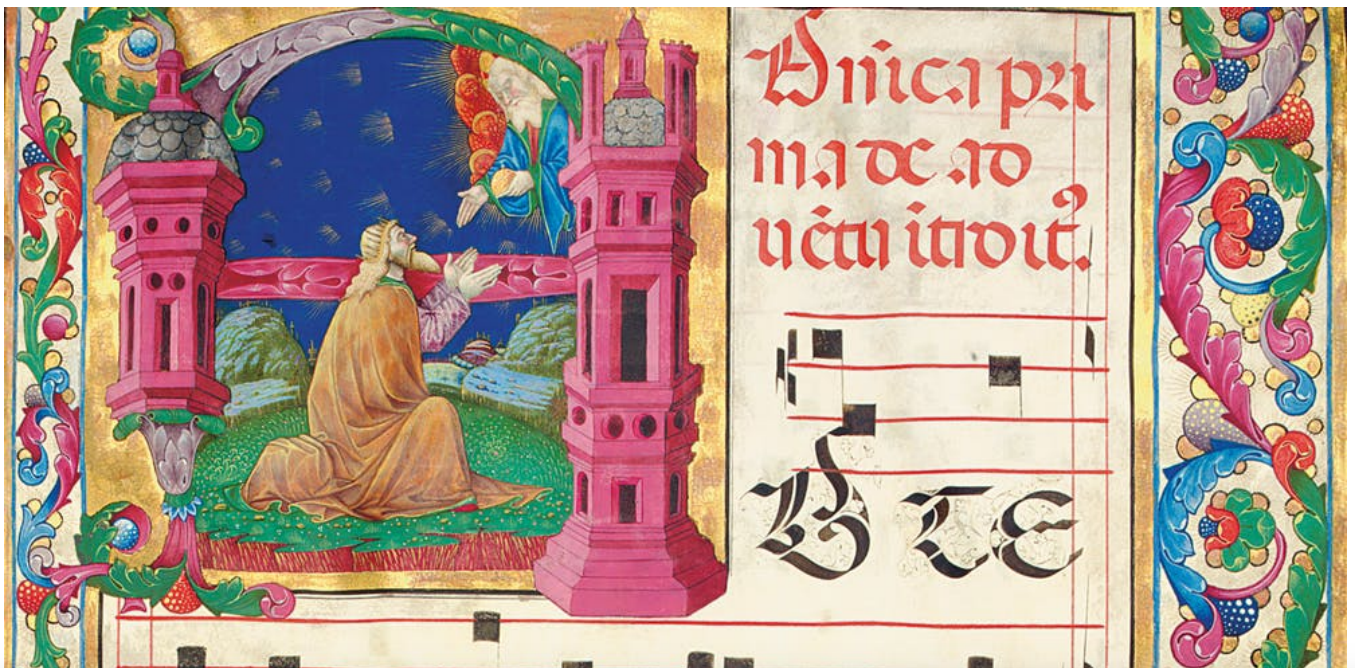 Dnica pri
ma de ad
uētu itroit⁹.
AD TE